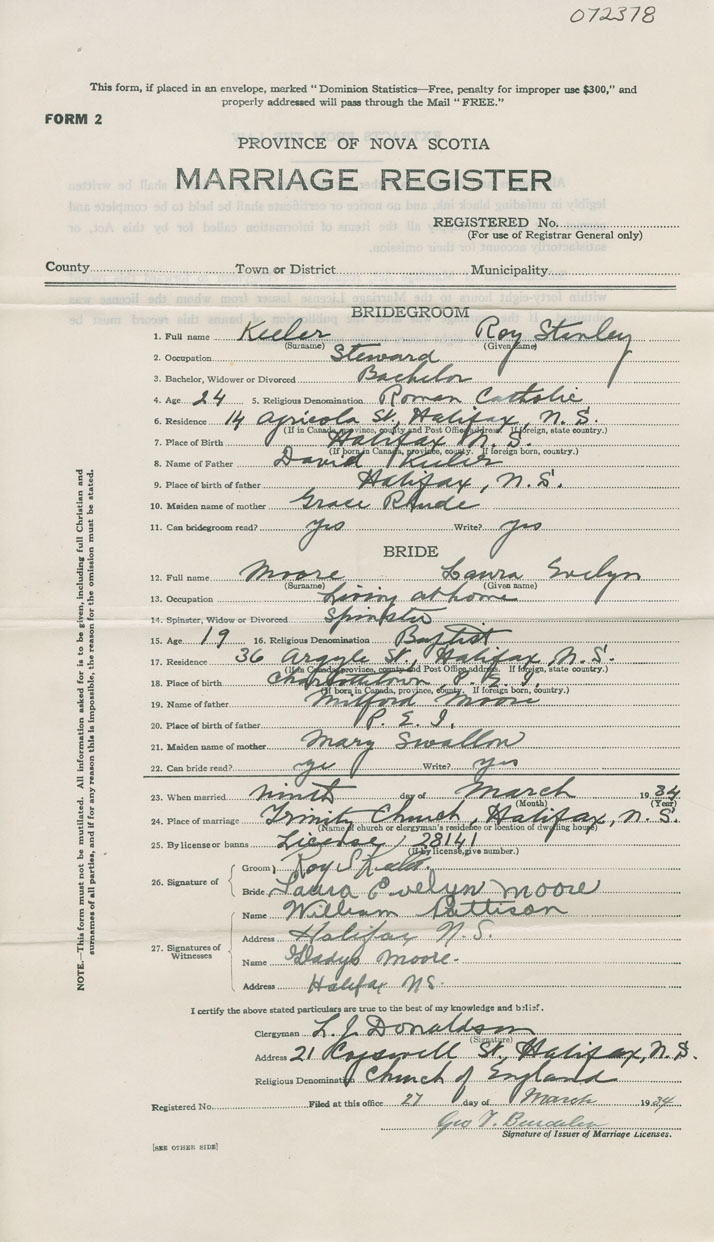 072378
This form, if placed in an envelope, marked "Dominion Statistics—Free, penalty for improper use $300," and
properly addressed will pass through the Mail "FREE."
FORM 2
PROVINCE OF NOVA SCOTIA
MARRIAGE REGISTER
REGISTERED No.
(For use of Registrar General only)
County Town or District Municipality
BRIDEGROOM
1. Full name Keeler Roy Stenley
(Surname) (Given name)
2. Occupation Steward
3. Bachelor, Widower or Divorced Bachelor
4. Age 24 5. Religious Denomination Roman Catholic
6. Residence 14 Agricola St, Halifax, N.S.
(If in Canada, province, county and Post Office address. If foreign, state country.)
7. Place of Birth Halifax N.S.
(If born in Canada, province, county. If foreign born, country.)
8. Name of Father David Keeler
9. Place of birth of father Halifax, N.S.
10. Maiden name of mother Grace Rhude
11. Can bridegroom read? yes Write? yes
BRIDE
12. Full name Moore Laura Evelyn
(Surname) (Given name)
13. Occupation Living at home
14. Spinster, Widow or Divorced Spinster
15. Age 19 16. Religious Denomination Baptist
17. Residence 36 Argyle St, Halifax, N.S.
(If in Canada, province, county and Post Office address. If foreign, state country.)
18. Place of birth Charlottetown P.E.I.
(If born in Canada, province, county. If foreign born, country.)
19. Name of father Milford Moore
20. Place of birth of father P.E.I.
21. Maiden name of mother Mary Swallow
22. Can bride read? yes Write? yes
23. When married ninth day of March 1934
(Month) (Year)
24. Place of marriage Trinity Church, Halifax, N.S.
(Name of church or clergyman's residence or location of dwelling house)
25. By license or banns License 28141
(If by license, give number.)
26. Signature of
Groom Roy S
Bride Laura Evelyn Moore
27. Signatures of Witnesses
Name William Pattison
Address Halifax N.S.
Name Gladys Moore.
Address Halifax NS.
I certify the above stated particulars are true to the best of my knowledge and belief.
Clergyman L. J. Donaldson
(Signature)
Address 21 Cogswell St, Halifax, N.S.
Religious Denomination Church of England
Registered No. Filed at this office 27 day of March 1934
Geo T.
Signature of Issuer of Marriage Licenses.
[SEE OTHER SIDE]
NOTE.—This form must not be mutilated. All information asked for is to be given, including full Christian and
surnames of all parties, and if for any reason this is impossible, the reason for the omission must be stated.